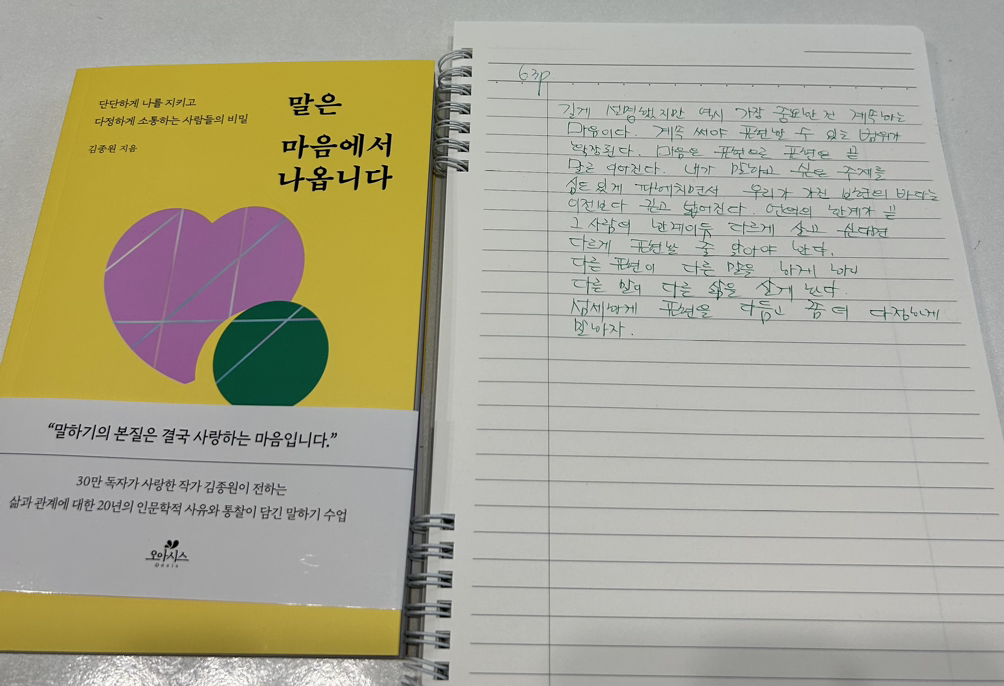 단단하게 나를 지키고
다정하게 소통하는 사람들의 비밀
김종원 지음
말은
마음에서
나옵니다
“말하기의 본질은 결국 사랑하는 마음입니다.”
30만 독자가 사랑한 작가 김종원이 전하는
삶과 관계에 대한 20년의 인문학적 사유와 통찰이 담긴 말하기 수업
오아시스
Oasis
63p
길게 설명했지만 역시 가장 중요한 건 계속하는
마음이다. 계속 써야 표현할 수 있는 범위가
확장된다. 마음은 표현으로 표현은 끝
말로 이어진다. 내가 말하고 싶은 주제를
심도있게 파헤치면서 우리가 가진 발언의 바다는
이전보다 깊고 넓어진다. 언어의 한계가 끝
그 사람의 한계이듯 다르게 살고 싶다면
다르게 표현할 줄 알아야 한다.
다른 표현이 다른 말을 하게 하고
다른 말이 다른 삶을 살게 한다.
섬세하게 표현을 다듬고 좀 더 다정하게
말하자.